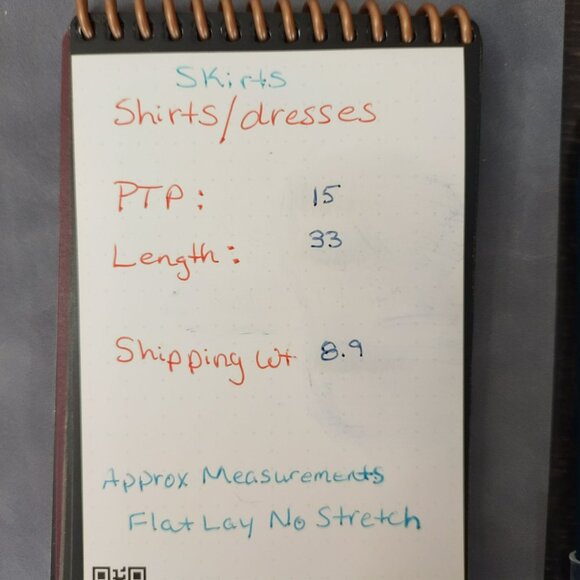 Skirts
Shirts/dresses
PTP: 15
Length: 33
Shipping Wt 8.9
Approx Measurements
Flat Lay No Stretch